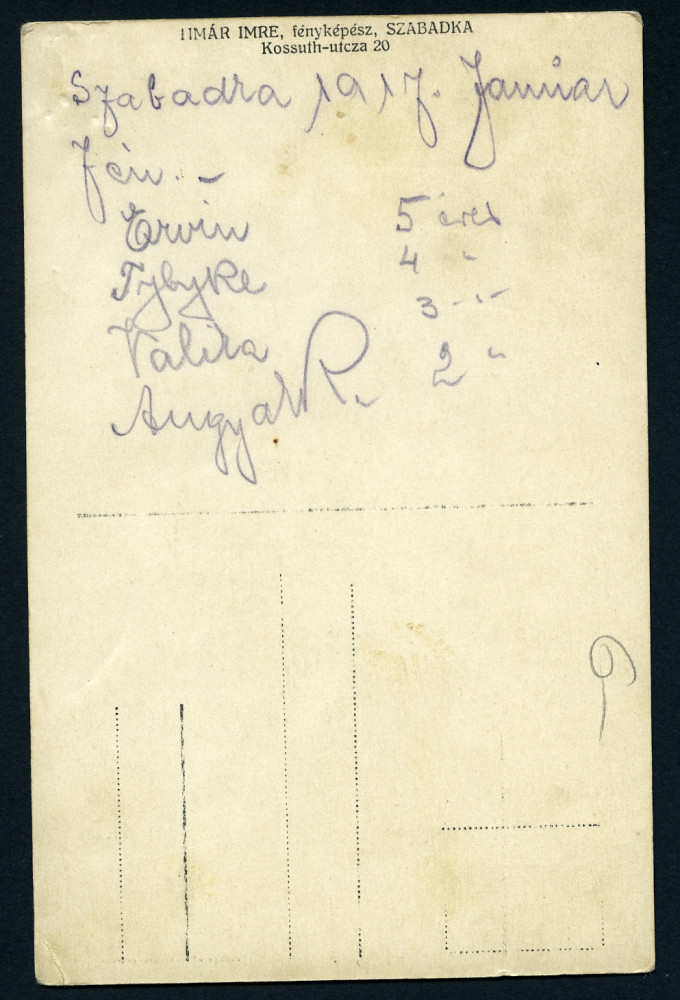 TIMÁR IMRE, fényképész, SZABADKA
Kossuth-utcza 20
Szabadka 1917. Januar
fén. -
Ervin 5 éves
Tybyke 4 "
Valika 3 - " -
Angyal R. 2 "
9